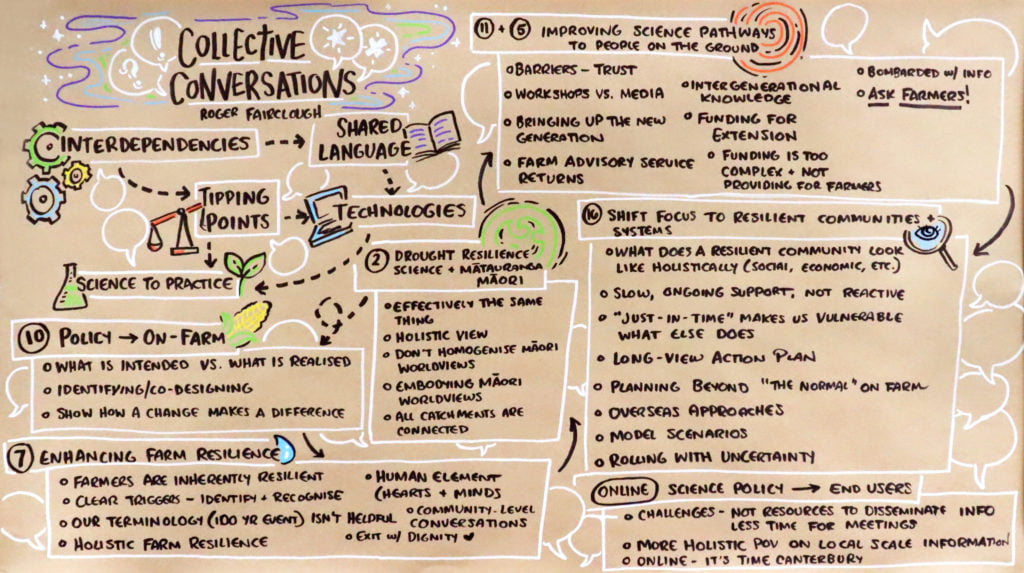 COLLECTIVE
CONVERSATIONS
ROGER FAIRCLOUGH
INTERDEPENDENCIES
SHARED
LANGUAGE
TIPPING
POINTS
TECHNOLOGIES
SCIENCE TO PRACTICE
10 POLICY → ON-FARM
WHAT IS INTENDED VS. WHAT IS REALISED
IDENTIFYING/CO-DESIGNING
SHOW HOW A CHANGE MAKES A DIFFERENCE
2 DROUGHT RESILIENCE
SCIENCE + MĀTAURANGA
MĀORI
EFFECTIVELY THE SAME
THING
HOLISTIC VIEW
DON'T HOMOGENISE MĀORI
WORLDVIEWS
EMBODYING MĀORI
WORLDVIEWS
ALL CATCHMENTS ARE
CONNECTED
7 ENHANCING FARM RESILIENCE
FARMERS ARE INHERENTLY RESILIENT
CLEAR TRIGGERS - IDENTIFY + RECOGNISE
OUR TERMINOLOGY (100 YR EVENT) ISN'T HELPFUL
HOLISTIC FARM RESILIENCE
HUMAN ELEMENT
(HEARTS + MINDS
COMMUNITY-LEVEL
CONVERSATIONS
EXIT W/ DIGNITY
11 + 5 IMPROVING SCIENCE PATHWAYS
TO PEOPLE ON THE GROUND
BARRIERS - TRUST
WORKSHOPS VS. MEDIA
BRINGING UP THE NEW
GENERATION
FARM ADVISORY SERVICE
RETURNS
INTERGENERATIONAL
KNOWLEDGE
FUNDING FOR
EXTENSION
FUNDING IS TOO
COMPLEX + NOT
PROVIDING FOR FARMERS
BOMBARDED W/ INFO
ASK FARMERS!
16 SHIFT FOCUS TO RESILIENT COMMUNITIES +
SYSTEMS
WHAT DOES A RESILIENT COMMUNITY LOOK
LIKE HOLISTICALLY (SOCIAL, ECONOMIC, ETC.)
SLOW, ONGOING SUPPORT, NOT REACTIVE
"JUST-IN-TIME" MAKES US VULNERABLE
WHAT ELSE DOES
LONG-VIEW ACTION PLAN
PLANNING BEYOND "THE NORMAL" ON FARM
OVERSEAS APPROACHES
MODEL SCENARIOS
ROLLING WITH UNCERTAINTY
ONLINE SCIENCE POLICY → END USERS
CHALLENGES - NOT RESOURCES TO DISSEMINATE INFO
LESS TIME FOR MEETINGS
MORE HOLISTIC POV ON LOCAL SCALE INFORMATION
ONLINE - IT'S TIME CANTERBURY